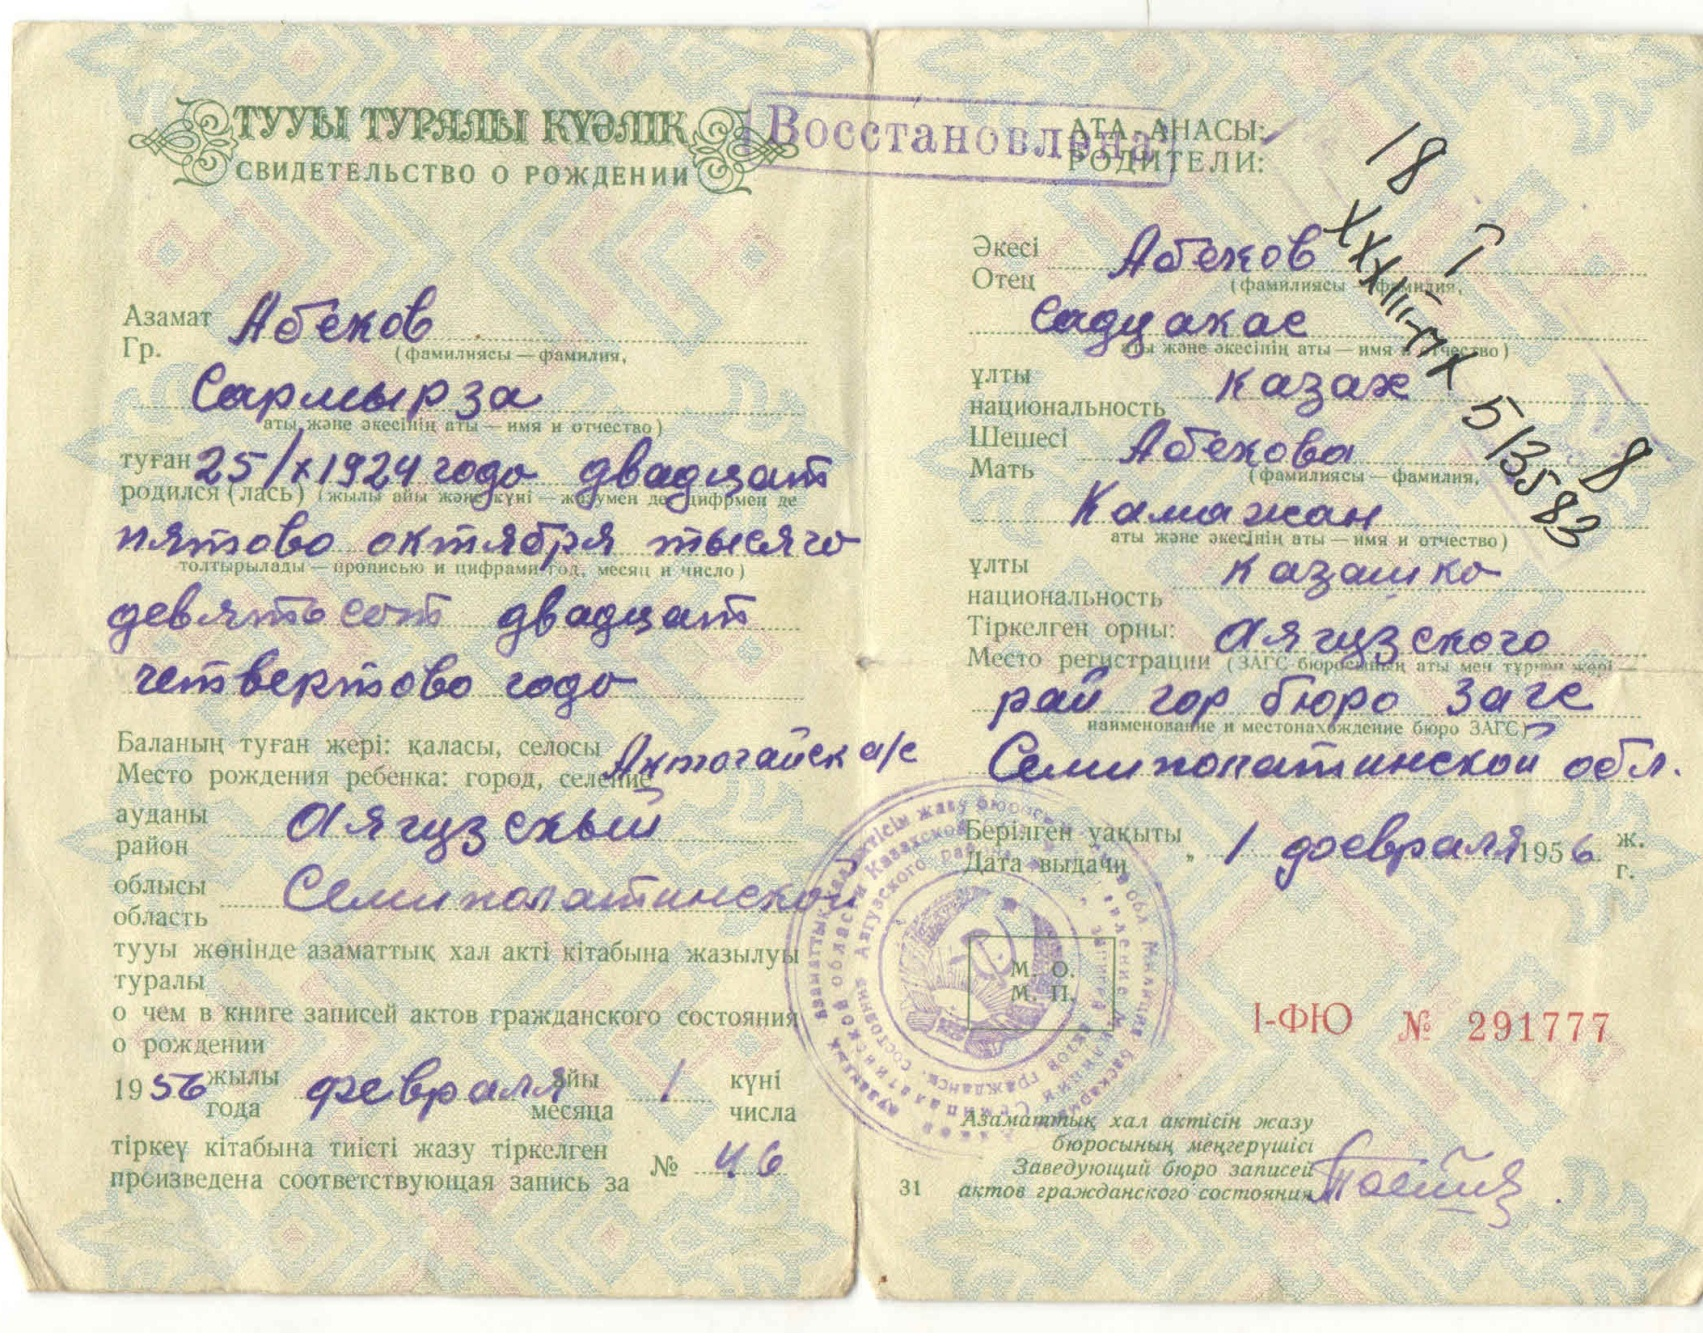 ТУУЫ ТУРАЛЫ КУӘЛІК
СВИДЕТЕЛЬСТВО О РОЖДЕНИИ
Азамат
Гр.
Абеков
(фамилиясы — фамилия,
Сармырза
аты және әкесінің аты — имя и отчество)
туған
родился (лась)
25/X 1924 годо двадцат
(жылы айы және күні — жазумен де цифрмен де
пятово октября тысячо
толтырылады — прописью и цифрами год, месяц и число)
девятьсот двадцат
четвертово годо
Баланың туған жері: қаласы, селосы
Место рождения ребенка: город, селение
Актогайск а/с
ауданы
район
Аягузский
облысы
область
Семиполатинской
тууы жөнінде азаматтық хал акті кітабына жазылуы
туралы
о чем в книге записей актов гражданского состояния
о рождении
1956 жылы февраля айы 1 күні
года месяца числа
тіркеу кітабына тиісті жазу тіркелген
произведена соответствующая запись за
№ 46
Восстановлена
АТА-АНАСЫ:
РОДИТЕЛИ:
Әкесі
Отец
Абеков
(фамилиясы — фамилия,
Садуакас
аты және әкесінің аты — имя и отчество)
ұлты
национальность
казах
Шешесі
Мать
Абекова
(фамилиясы — фамилия,
Камажан
аты және әкесінің аты — имя и отчество)
ұлты
национальность
казашко
Тіркелген орны:
Место регистрации
Аягузского
(ЗАГС бюросының аты мен тұрған жері —
рай гор бюро Загс
наименование и местонахождение бюро ЗАГС)
Семиполатинской обл.
Берілген уақыты
Дата выдачи
„ 1 февраля 1956 ж.
г.
М. О.
М. П.
І-ФЮ № 291777
Азаматтық хал актісін жазу
бюросының меңгерушісі
Заведующий бюро записей
актов гражданского состояния
31
18
8
5/3583